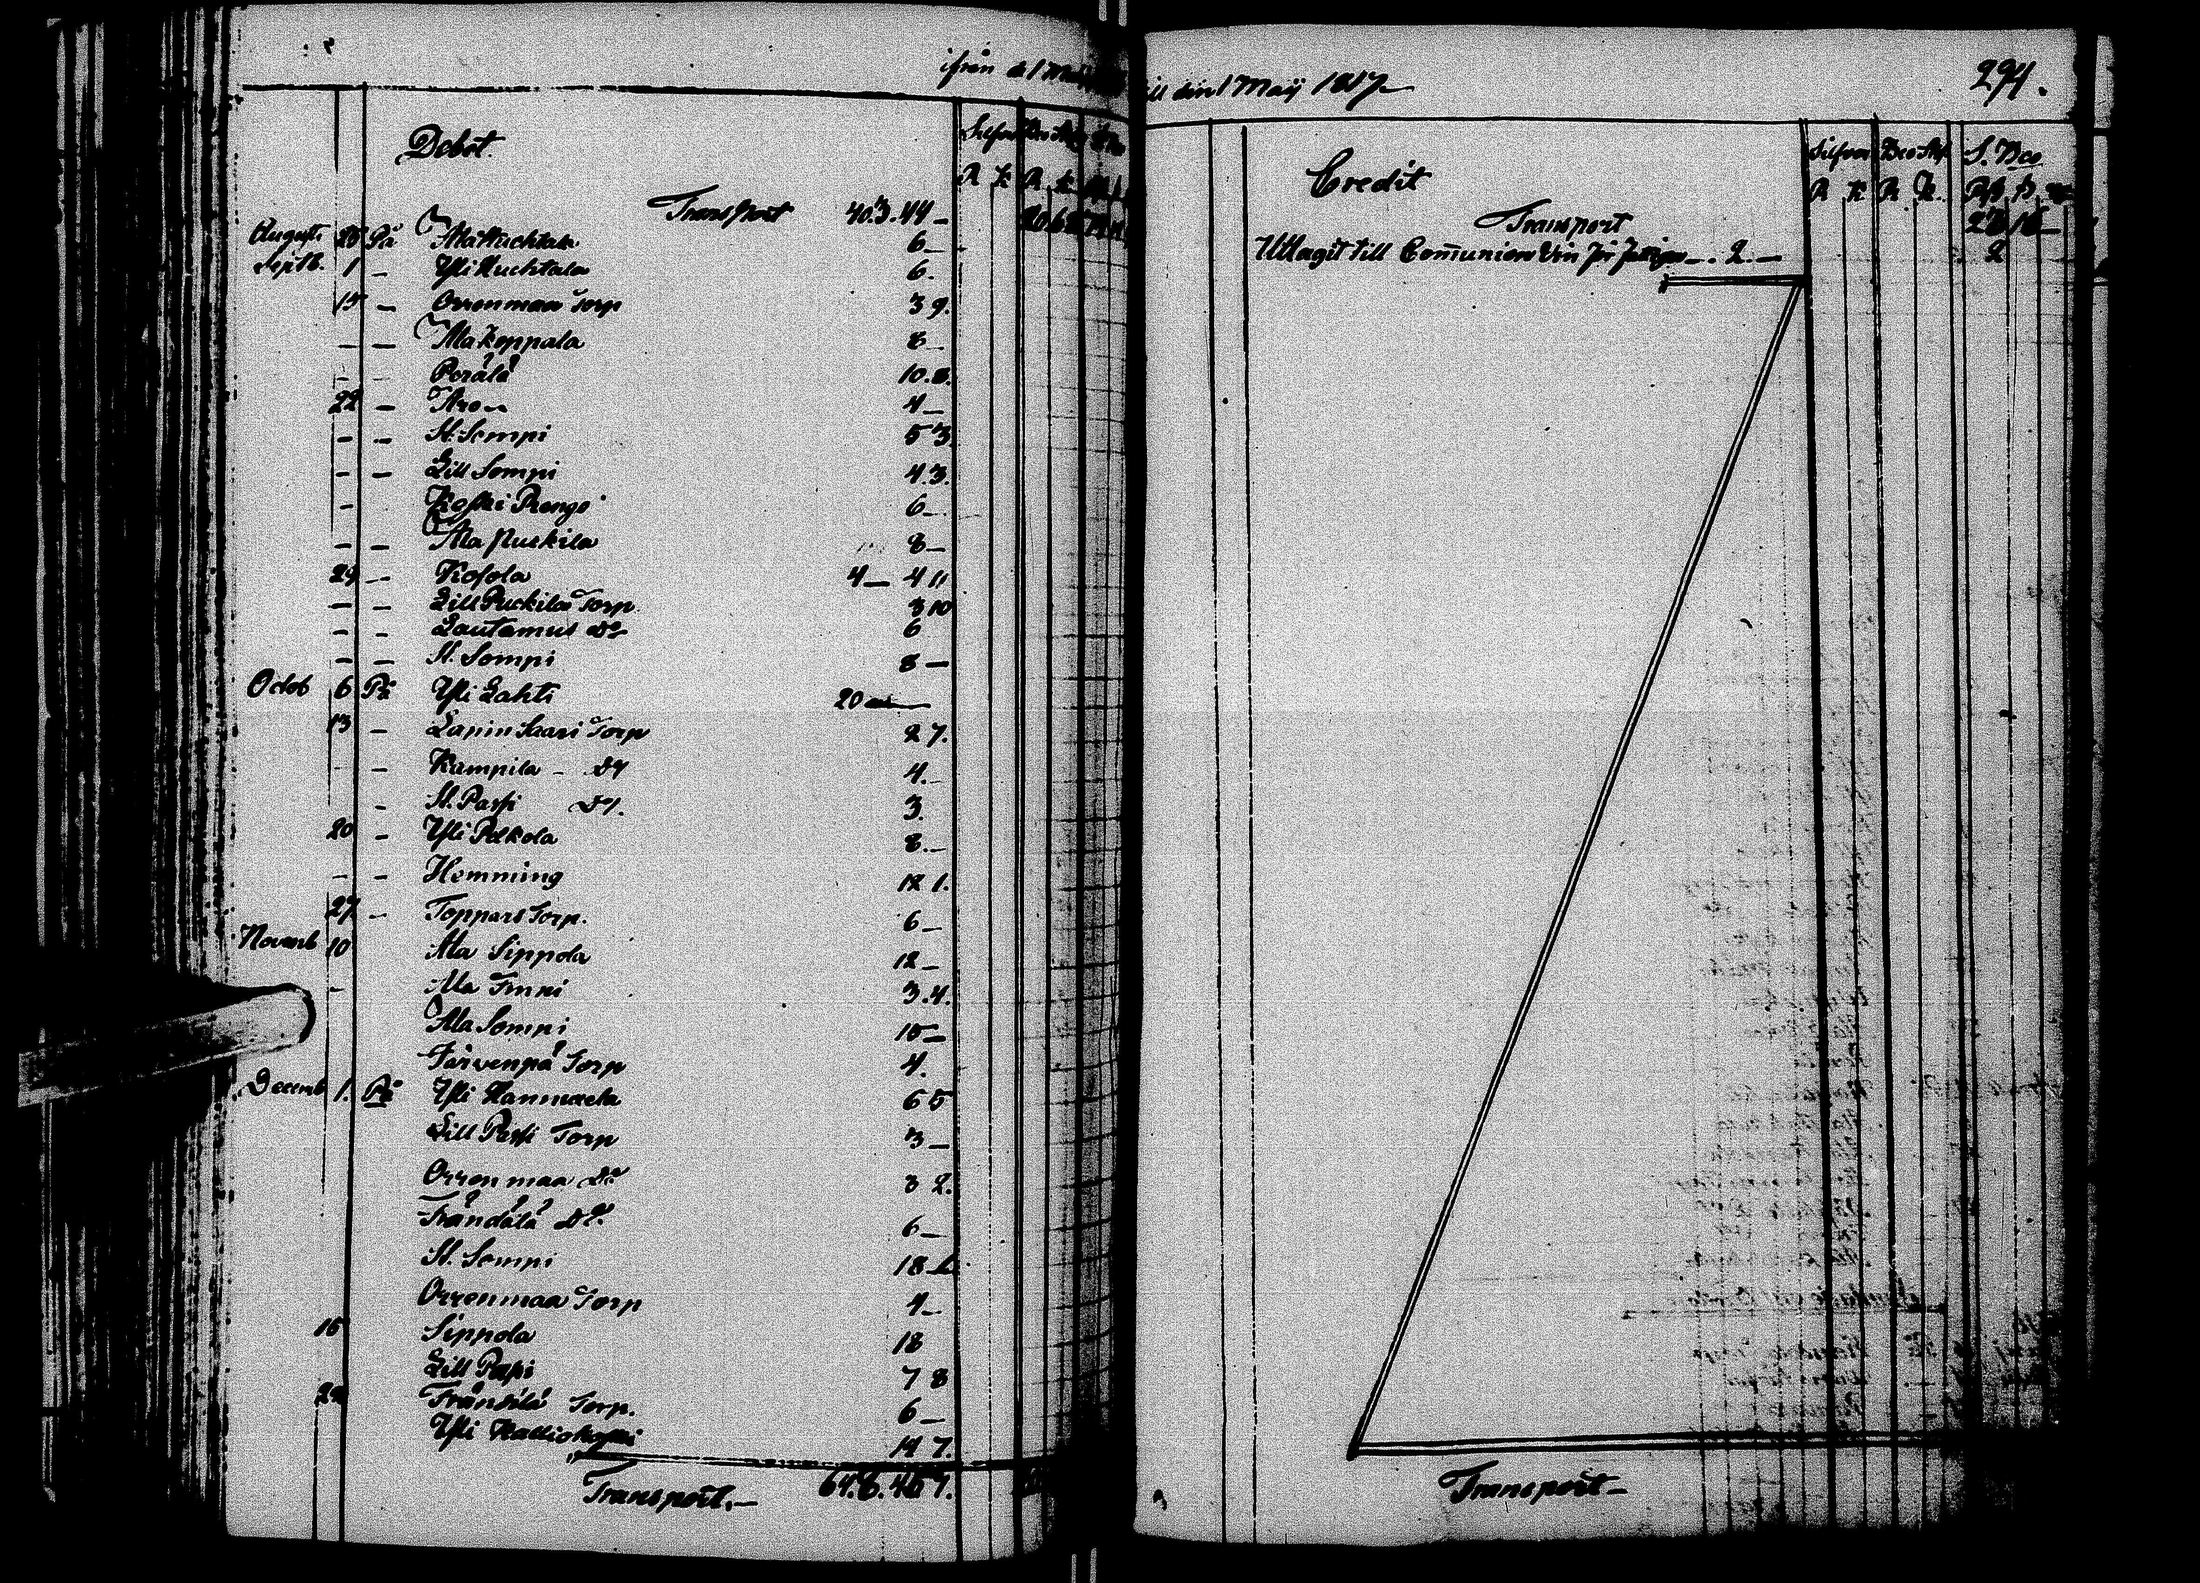 ifrån d. 1 Maij
Debet.
Silfver Bco Ass.
R k R k
Transport 40.3. 44 –
Augusti 25 På Ala Huchtala 6 –
Septb. 1 – Yli Huchtala 6.
15 – Orrenmaa Torp 3 9.
– – Ala Keppala 8 –
– – Perälä 10. 8.
22 – Aro 4 –
– – St. Sompi 5 3.
– – Lill Sompi 4. 3.
– Koski Rengo 6 –
– – Ala Puckila 8 –
29 – Kosola 4 – 4 11
– – Lill Puckila Torp 3 10
– – Lautamus Do 6
– – St. Sompi 8 –
Octob 6 På Yli Lahti 20 –
13 – Laninsaari Torp 2 7.
– Kampila – Do 4. –
– St. Passi Do. 3.
20 – Yli Pelkola 8. –
– – Hemming 12 1.
27 – Toppars Torp. 6 –
Novemb 10 Ala Sippola 12 –
– Ala Finni 3. 4.
Ala Sompi 10 –
Järvenpä Torp 4.
Decemb 1. På Yli Hanmuela 6 5
Lill Passi Torp 3 –
Orrenmaa Do 3 2.
Frändilä Do. 6 –
St. Sompi 18
Orrenmaa Torp 4 –
15 Sippola 18
Lill Passi 7 8
22 Frändilä Torp. 6 –
Yli Kalliokoski 14 7.
Transport. – 64. 8. 46 7.
till den 1 Maij 1817.
294.
Credit
Silfver Bco Ass. S. Bco
R k R k
Transport 28 16 –
Utlagit till Comunion Vin –. 2. – 2
Transport –